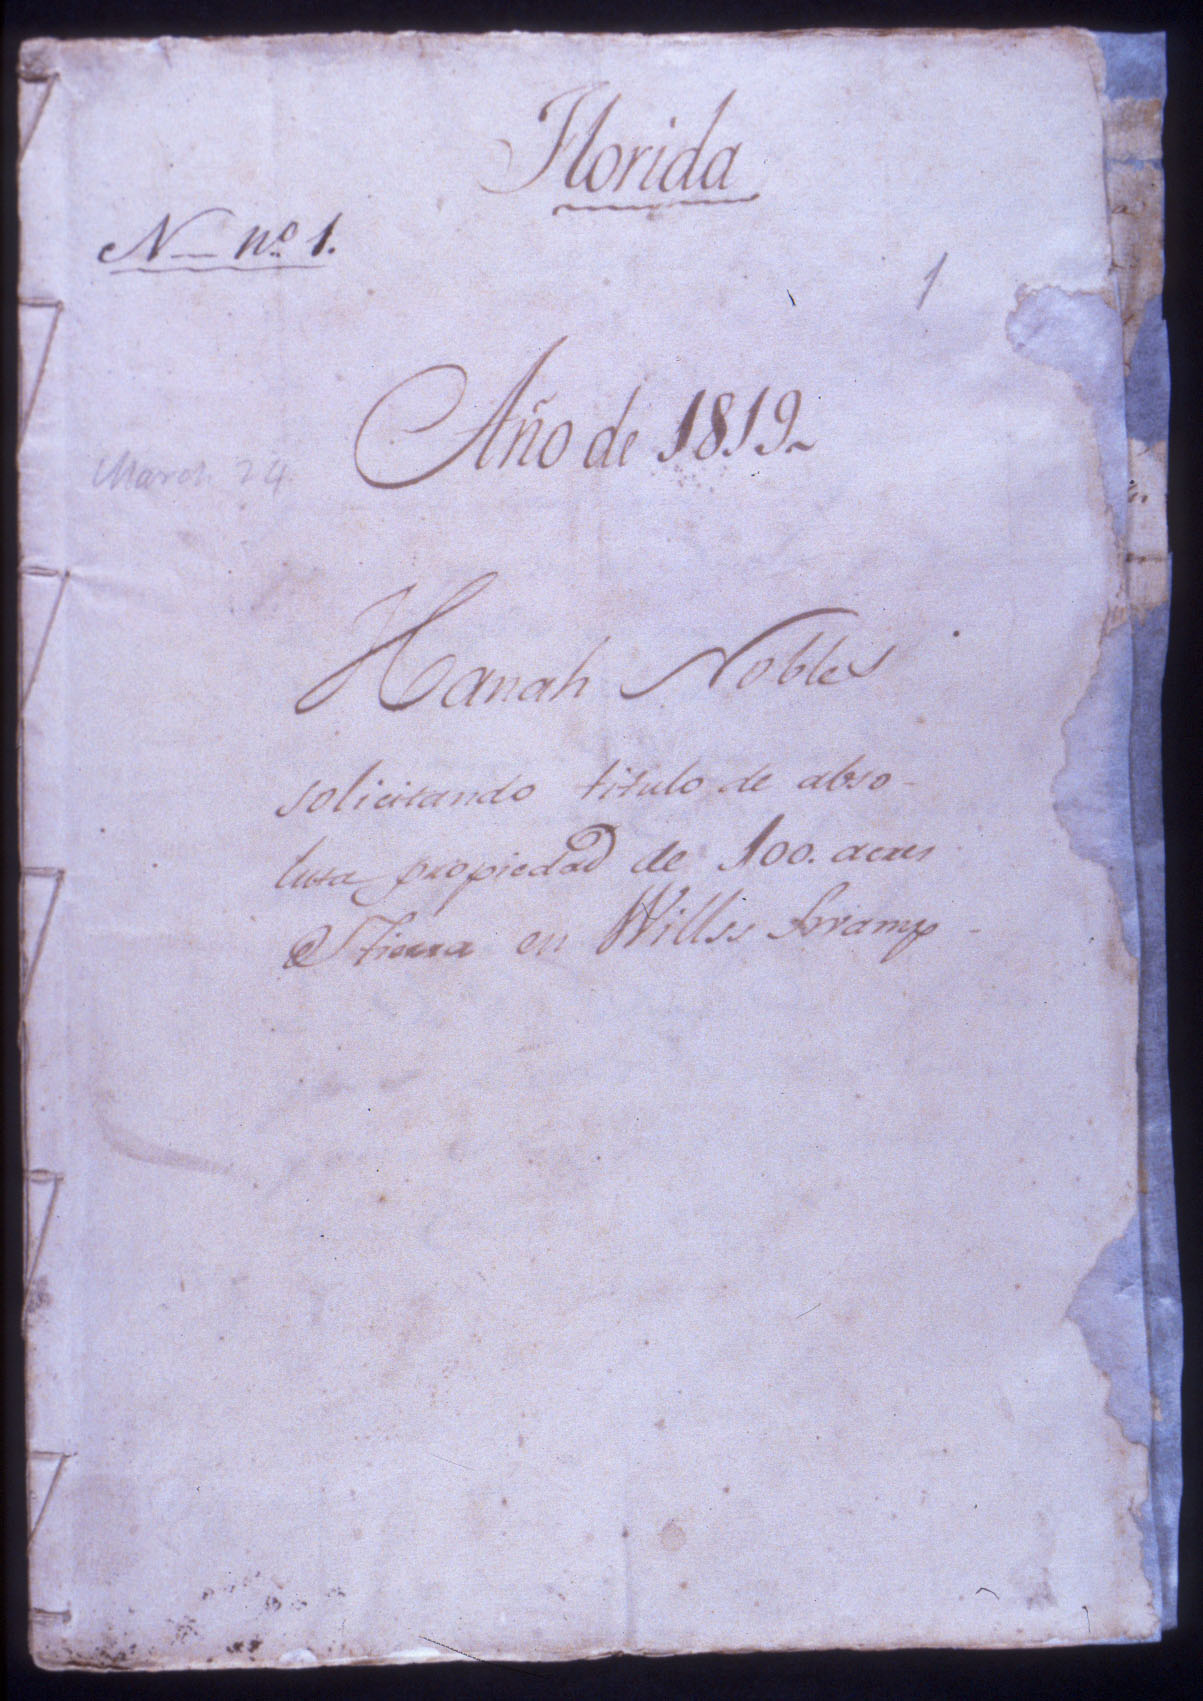 Florida
N— nº 1.
1
Año de 1819
March 24.
Hanah Nobles
solicitando titulo de abso-
luta propiedad de 100. acres
tierra en Willss Swamp